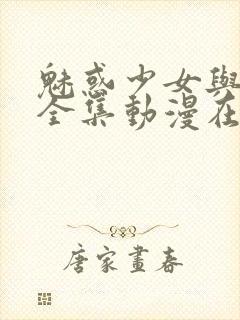 魅惑少女與
全集動漫在
唐家畫春